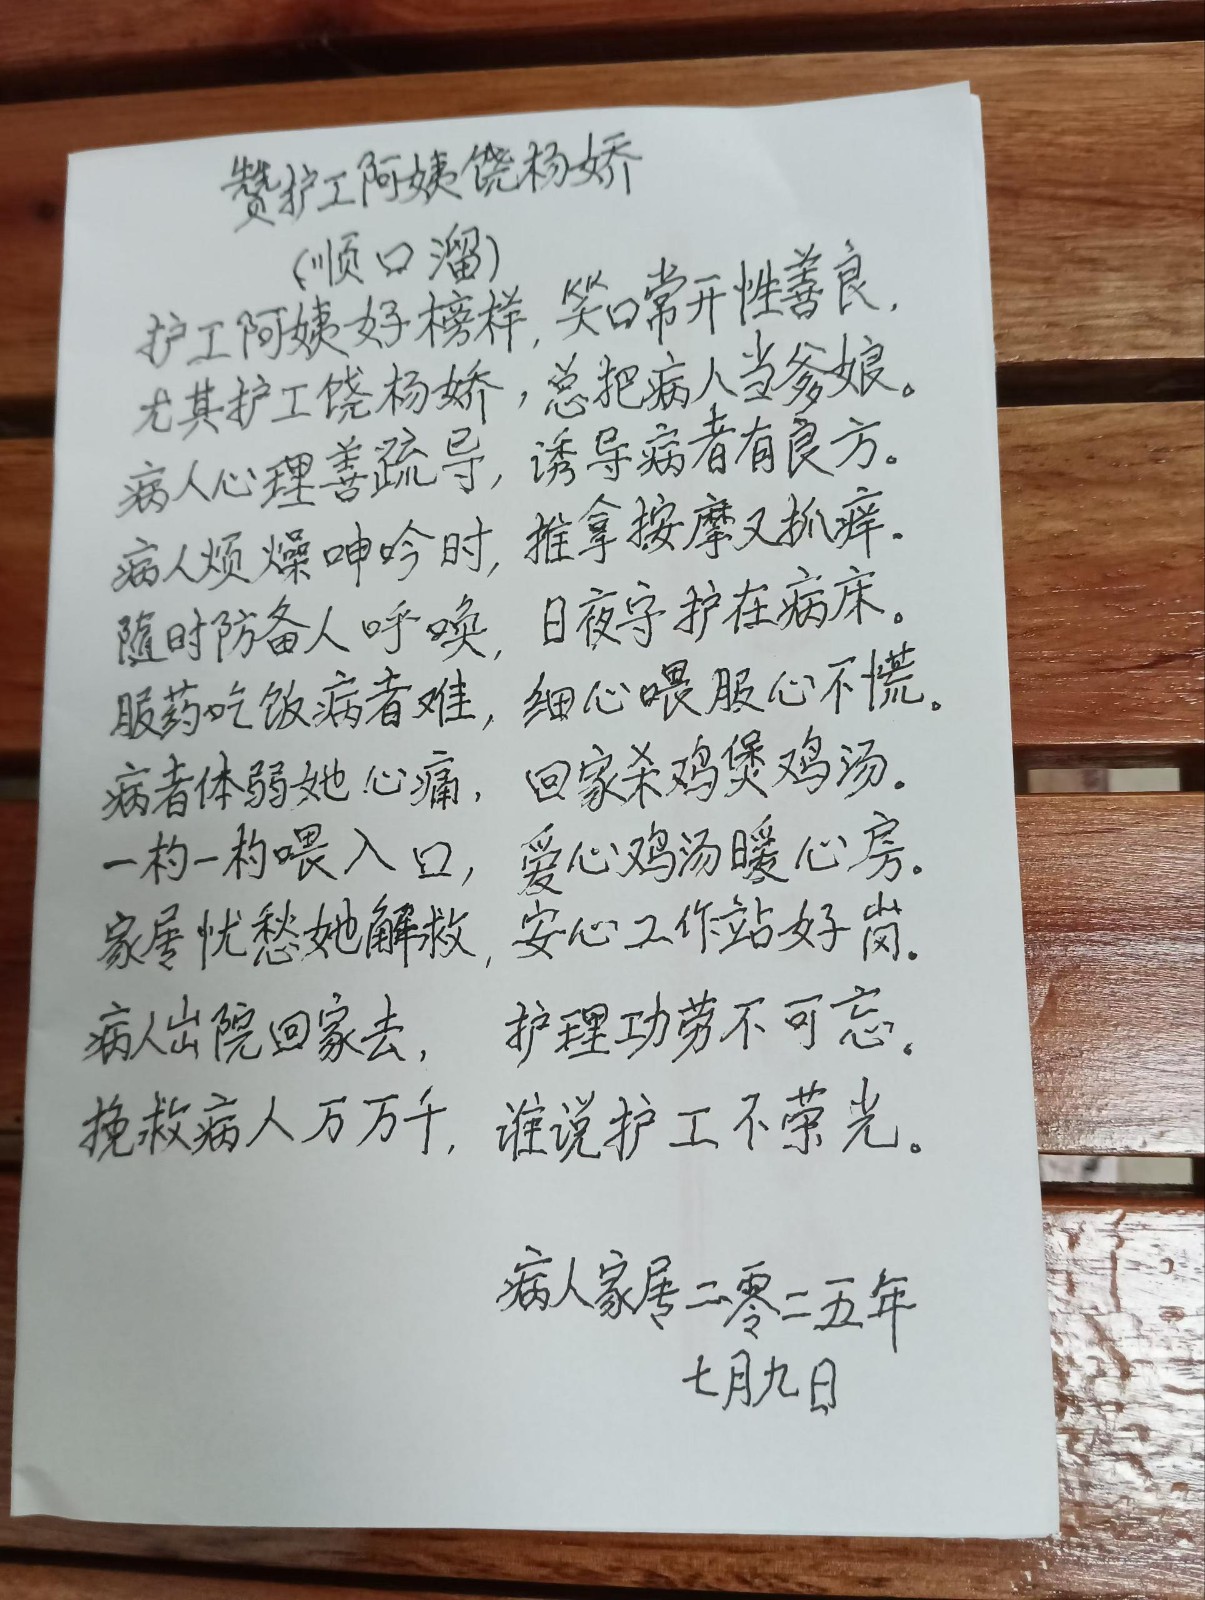 赞护工阿姨饶杨娇
(顺口溜)
护工阿姨好榜样,笑口常开性善良.
尤其护工饶杨娇,总把病人当爹娘。
病人心理善疏导,诱导病者有良方。
病人烦燥呻吟时,推拿按摩又抓痒.
随时防备人呼唤,日夜守护在病床。
服药吃饭病者难,细心喂服心不慌。
病者体弱她心痛,回家杀鸡煲鸡汤.
一杓一杓喂入口,爱心鸡汤暖心房.
家属忧愁她解救,安心工作站好岗.
病人出院回家去,护理功劳不可忘。
挽救病人万万千,谁说护工不荣光。
病人家属二零二五年
七月九日